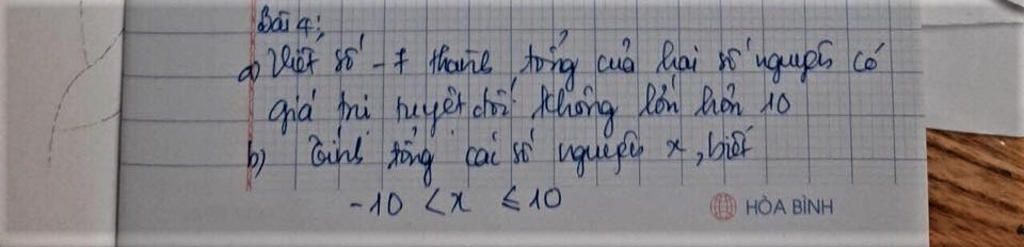 Bài 4:
a) Viết số -7 thành tổng của hai số nguyên có
giá trị tuyệt đối không lớn hơn 10
b) Tính tổng các số nguyên x, biết
-10 < x ≤ 10
HÒA BÌNH